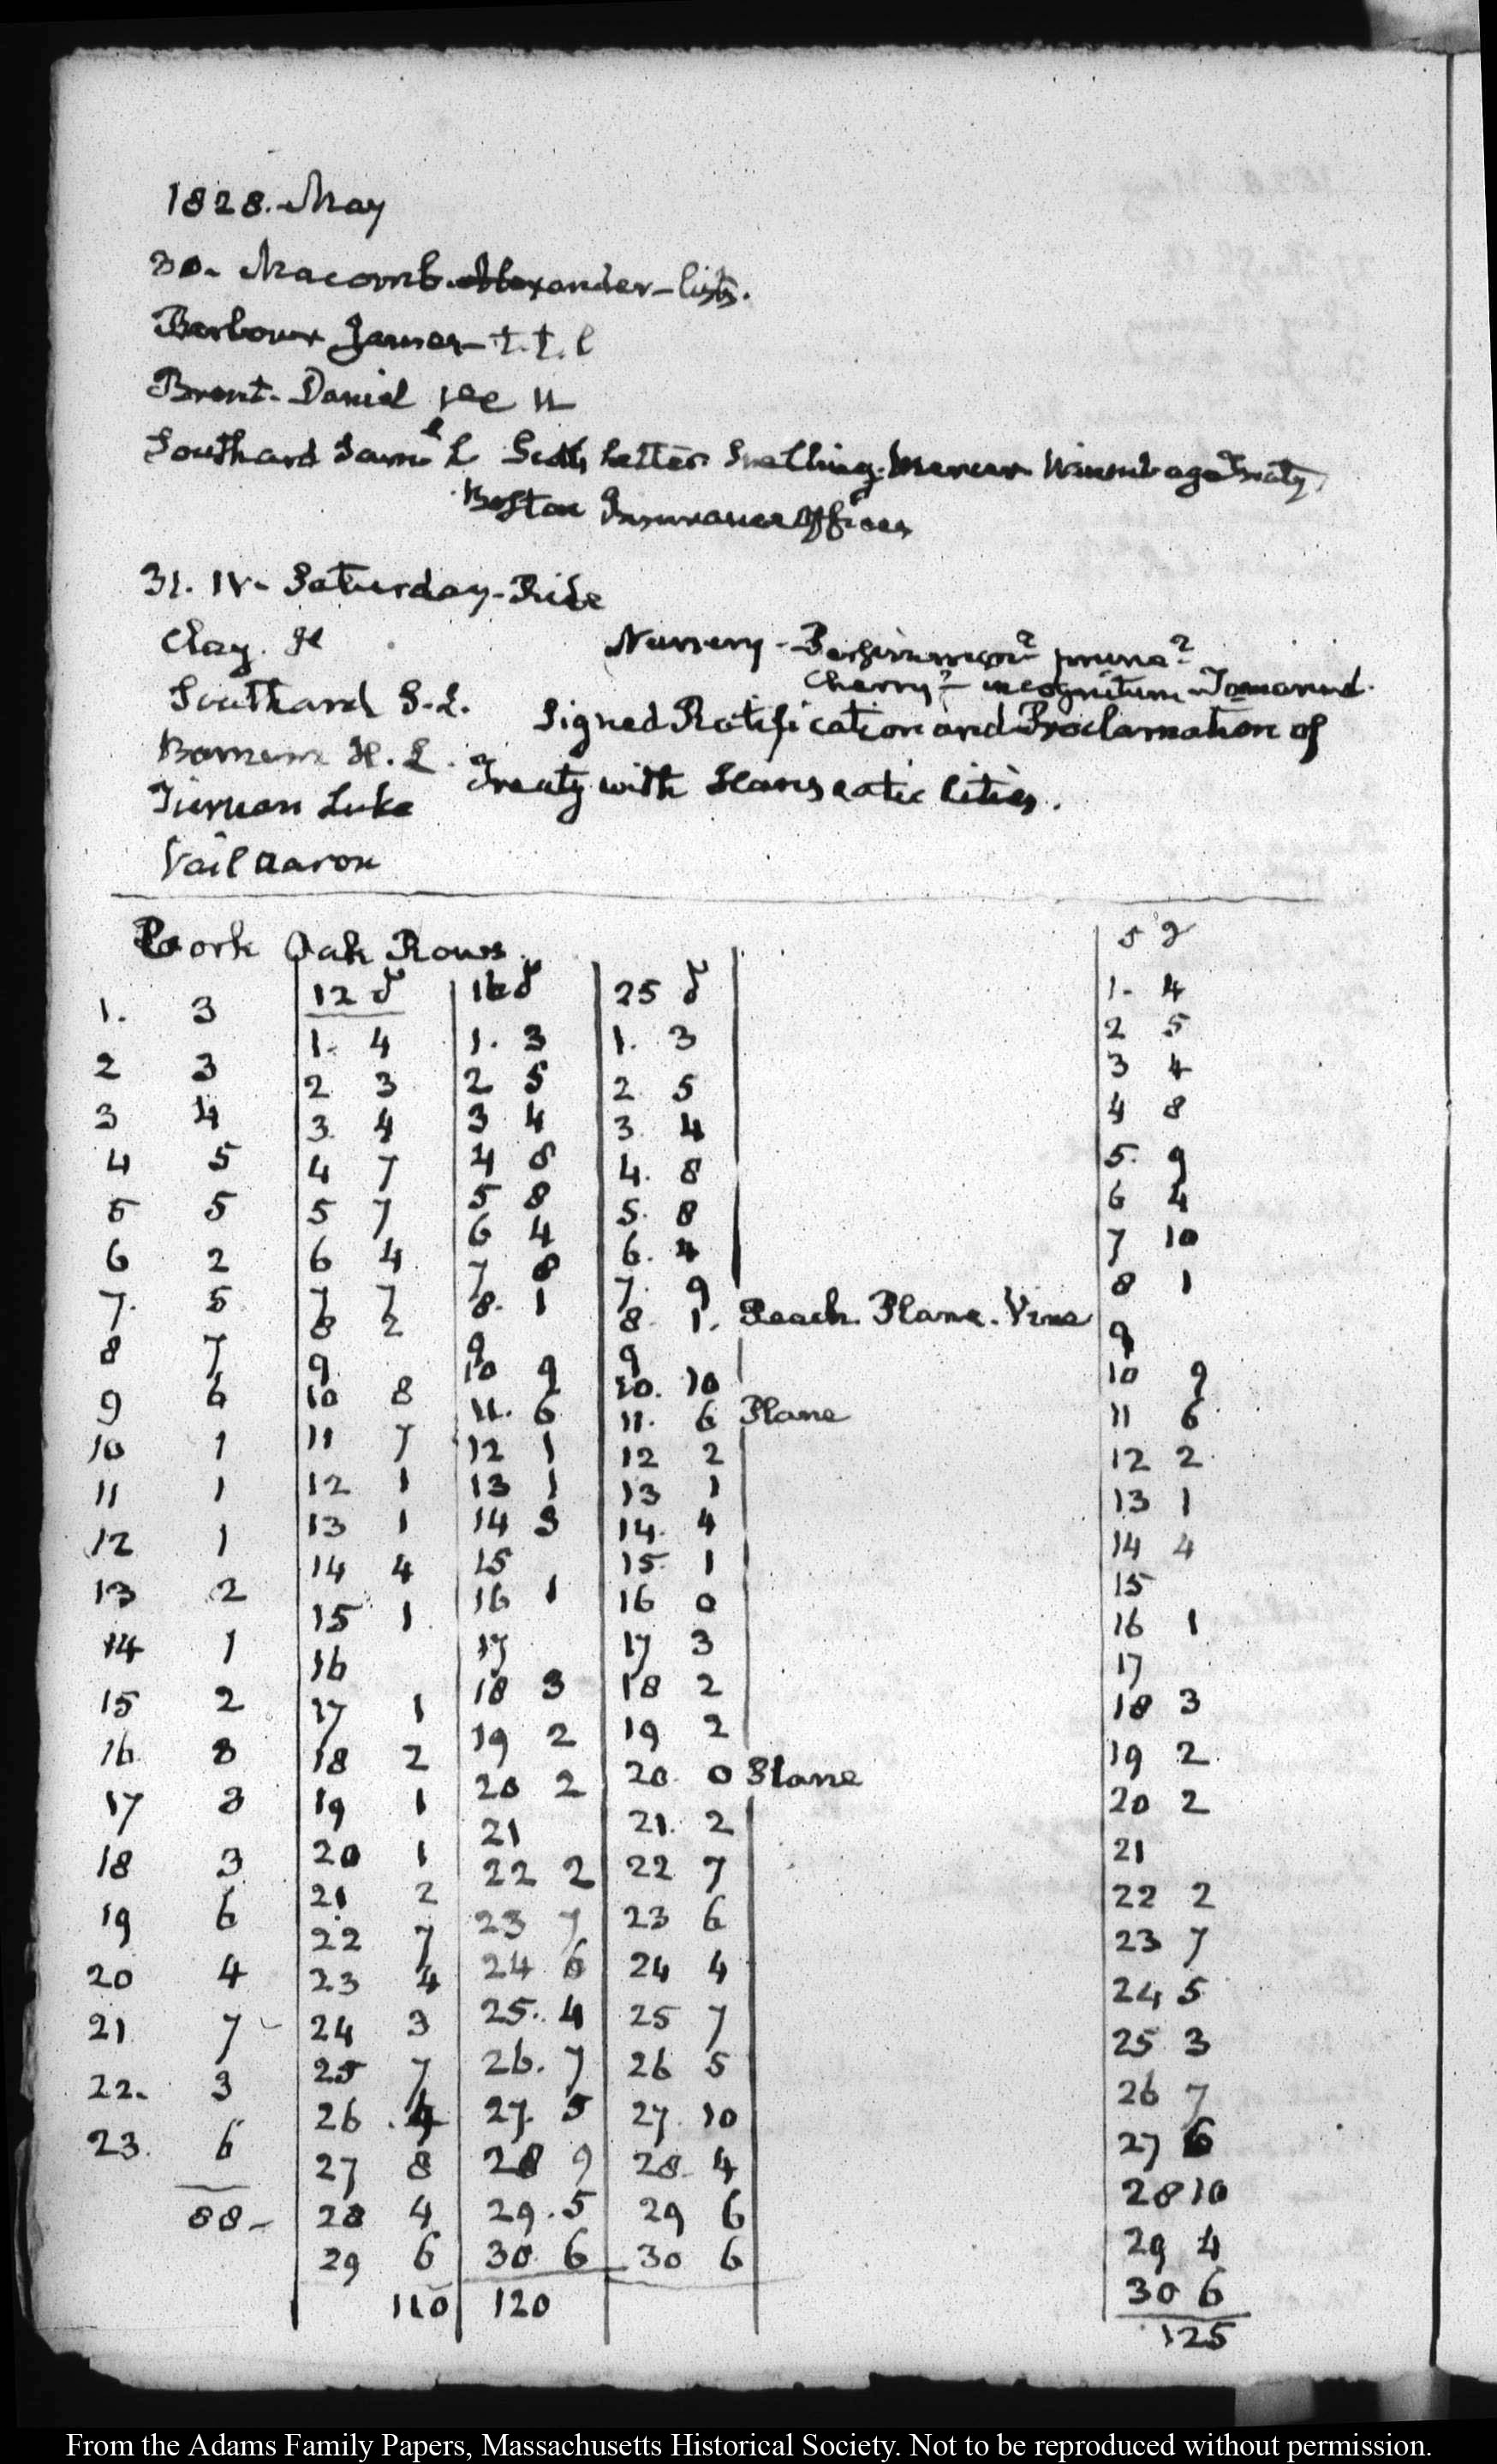 1828. May
30. Macomb. Alexander - lists.
Barbour James - t. t. l
Brent. Daniel
Southard Sam.l L Letter Snelling. Mercer Winnebago Treaty
Boston Insurance Offices
31. IV. Saturday. Ride
Clay. H
Nursery - Persimmon? prune?
Cherry? incognitum - Tamarind.
Southard S. L.
Signed Ratification and Proclamation of
H. L.
Treaty with Hanseatic Cities.
Tiernan Luke
Vail Aaron
Cork Oak Rows.
5
12 16 25
1. 3 1. 4 1. 3 1. 3 1. 4
2 3 2 3 2 5 2 5 2 5
3 4 3. 4 3 4 3. 4 3 4
4 5 4 7 4 8 4. 8 4 8
5 5 5 7 5 8 5. 8 5. 9
6 2 6 4 6 4 6. 4 6 4
7. 5 7 7 7 8 7. 9 7 10
8 7 8 2 8. 1 8. 1. Peach. Plane. Vine 8 1
9 6 9 9 9 9
10 1 10 8 10 9 10. 10 10 9
11 1 11 7 11. 6 11. 6 Plane 11 6
12 1 12 1 12 1 12 2 12 2
13 2 13 1 13 1 13 1 13 1
14 1 14 4 14 3 14. 4 14 4
15 2 15 1 15 15. 1 15
16 3 16 16 1 16 0 16 1
17 3 17 1 17 17 3 17
18 3 18 2 18 3 18 2 18 3
19 6 19 1 19 2 19 2 19 2
20 4 20 1 20 2 20 0 Plane 20 2
21 7 21 2 21 21. 2 21
22. 3 22 7 22 2 22 7 22 2
23. 6 23 4 23 7 23 6 23 7
88 24 3 24 6 24 4 24 5
25 7 25. 4 25 7 25 3
26 4 26. 7 26 5 26 7
27 8 27. 5 27. 10 27 6
28 4 28 9 28. 4 28 10
29 6 29. 5 29 6 29 4
30 6 30 6 30 6
110 120 125
From the Adams Family Papers, Massachusetts Historical Society. Not to be reproduced without permission.